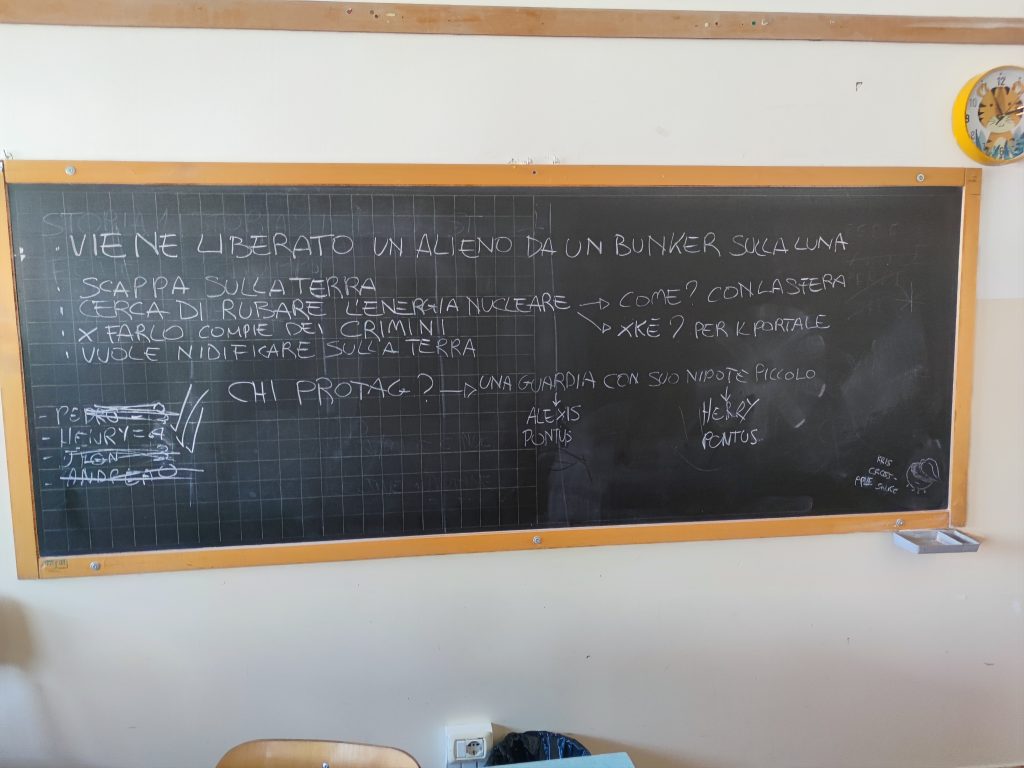 • VIENE LIBERATO UN ALIENO DA UN BUNKER SULLA LUNA
• SCAPPA SULLA TERRA
• CERCA DI RUBARE L'ENERGIA NUCLEARE → COME? CON LA SFERA
→ XKÈ? PER IL PORTALE
• X FARLO COMPIE DEI CRIMINI
• VUOLE NIDIFICARE SULLA TERRA
CHI PROTAG? → UNA GUARDIA CON SUO NIPOTE PICCOLO
ALEXIS
PONTUS
HENRY
PONTUS
- HENRY
- ANDREA
12